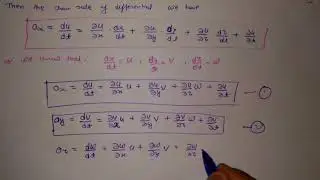 Then the chain rule of differential we have
aₓ = du/dt = ∂u/∂x · dx/dt + ∂u/∂y · dy/dt + ∂u/∂z · dz/dt + ∂u/∂t
we know that : dx/dt = u , dy/dt = v , dz/dt = w
aₓ = du/dt = ∂u/∂x u + ∂u/∂y v + ∂u/∂z w + ∂u/∂t —
ay = dv/dt = ∂v/∂x u + ∂v/∂y v + ∂v/∂z w + ∂v/∂t —
az = dw/dt = ∂w/∂x u + ∂w/∂y v = ∂w/∂z